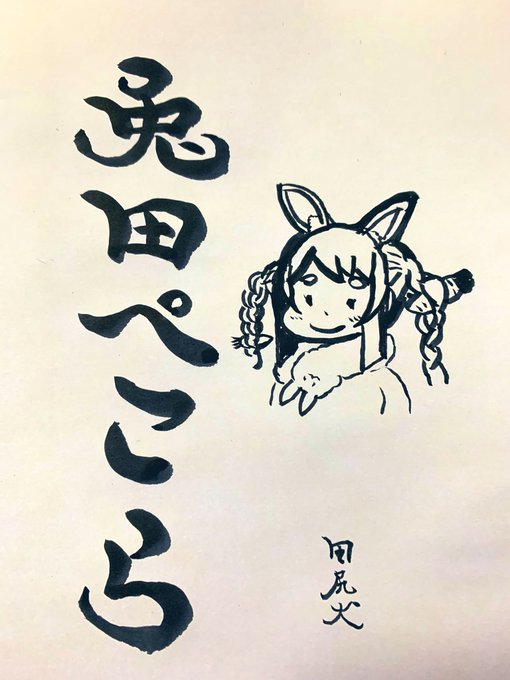 兎田ぺこら
田尻犬